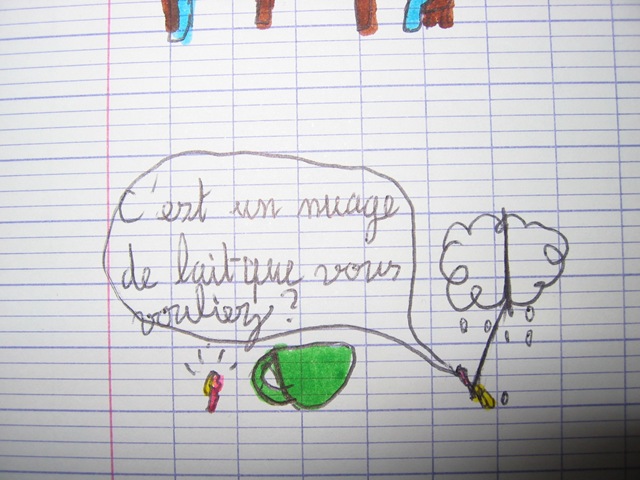 C'est un nuage
de lait que vous
vouliez ?